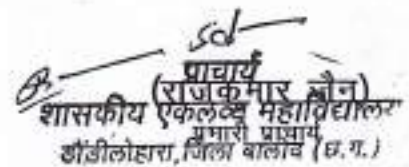 sd
प्राचार्य
(राजकुमार जैन)
शासकीय एकलव्य महाविद्यालय
प्रभारी प्राचार्य
डौंडीलोहारा, जिला बालोद (छ.ग.)